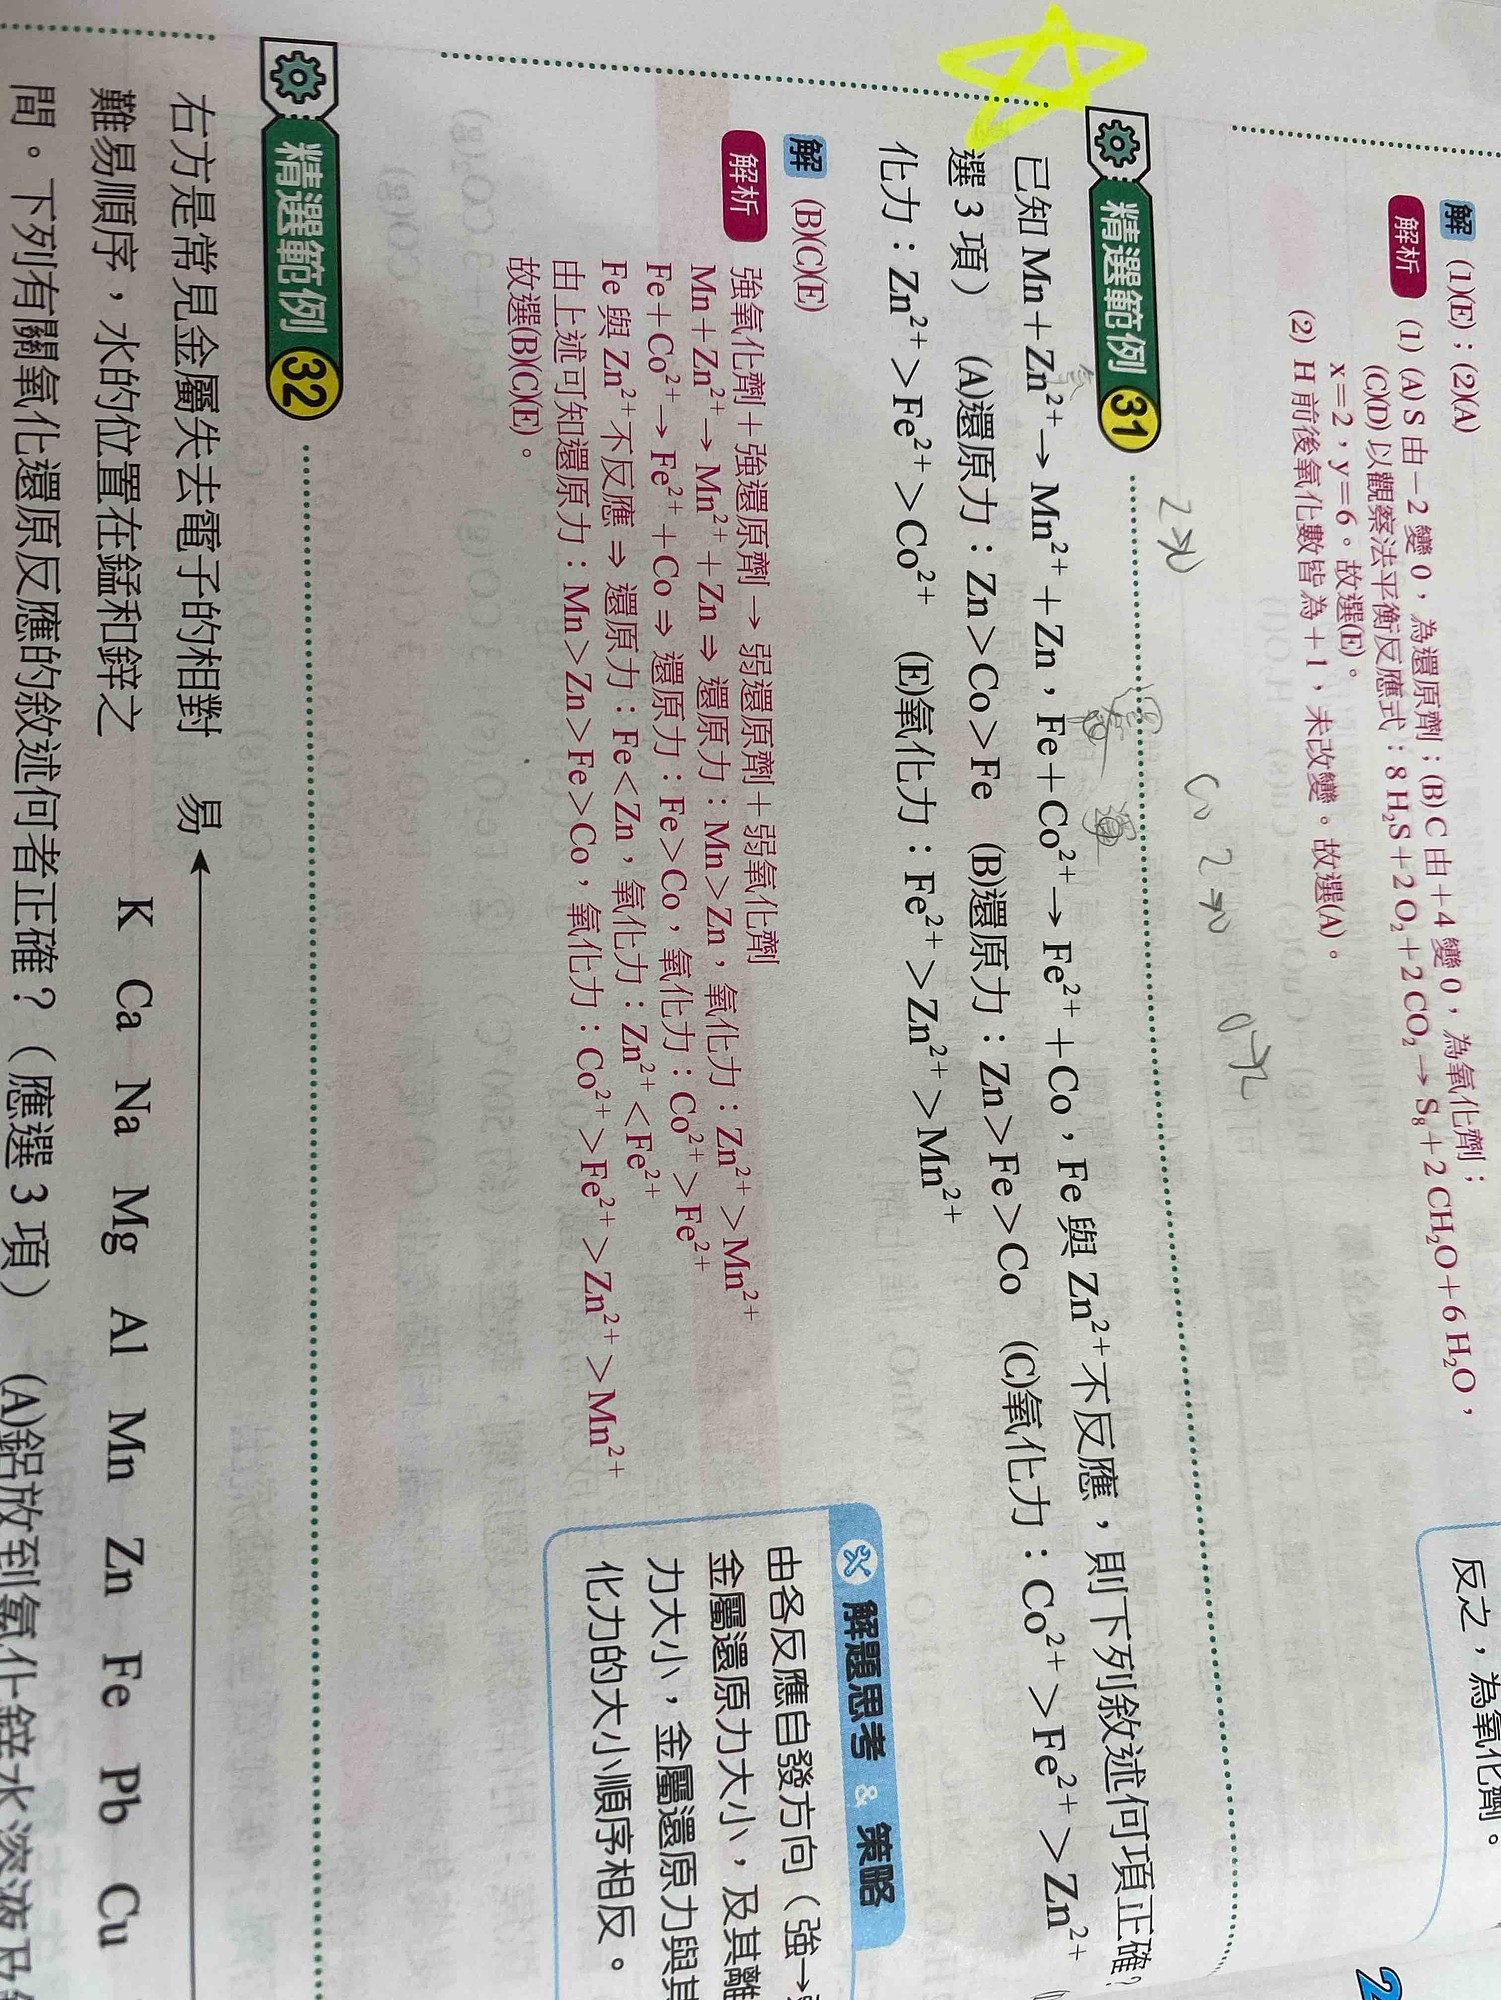 解 (1)(E)；(2)(A)
解析 (1) (A) S 由－2 變 0，為還原劑；(B) C 由＋4 變 0，為氧化劑；
(C)(D) 以觀察法平衡反應式：8 H₂S＋2 O₂＋2 CO₂→S₈＋2 CH₂O＋6 H₂O，
x＝2，y＝6。故選(E)。
(2) H 前後氧化數皆為＋1，未改變。故選(A)。
反之，為氧化劑。
2→0
Co 2→0
精選範例 31
已知 Mn＋Zn²⁺→Mn²⁺＋Zn，Fe＋Co²⁺→Fe²⁺＋Co，Fe 與 Zn²⁺不反應，則下列敘述何項正確？
選 3 項） (A)還原力：Zn＞Co＞Fe (B)還原力：Zn＞Fe＞Co (C)氧化力：Co²⁺＞Fe²⁺＞Zn²⁺
化力：Zn²⁺＞Fe²⁺＞Co²⁺ (E)氧化力：Fe²⁺＞Zn²⁺＞Mn²⁺
解 (B)(C)(E)
解析 強氧化劑＋強還原劑→弱還原劑＋弱氧化劑
Mn＋Zn²⁺→Mn²⁺＋Zn⇒還原力：Mn＞Zn，氧化力：Zn²⁺＞Mn²⁺
Fe＋Co²⁺→Fe²⁺＋Co⇒還原力：Fe＞Co，氧化力：Co²⁺＞Fe²⁺
Fe 與 Zn²⁺不反應⇒還原力：Fe＜Zn，氧化力：Zn²⁺＜Fe²⁺
由上述可知還原力：Mn＞Zn＞Fe＞Co，氧化力：Co²⁺＞Fe²⁺＞Zn²⁺＞Mn²⁺
故選(B)(C)(E)。
解題思考 & 策略
由各反應自發方向（強→
金屬還原力大小，及其離
力大小，金屬還原力與其
化力的大小順序相反。
精選範例 32
右方是常見金屬失去電子的相對 易
難易順序，水的位置在錳和鋅之 K Ca Na Mg Al Mn Zn Fe Pb Cu
間。下列有關氧化還原反應的敘述何者正確？（應選 3 項） (A)鋁放到氯化鋅水溶液